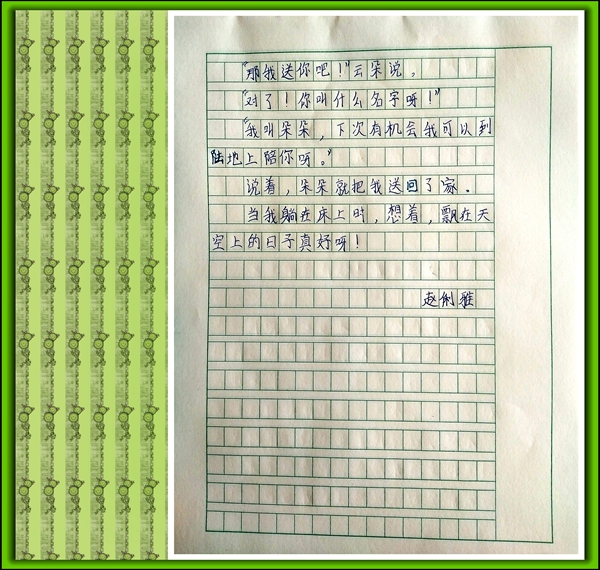 “那我送你吧！”云朵说。
“对了！你叫什么名字呀！”
“我叫朵朵，下次有机会我可以到
陆地上陪你呀。”
说着，朵朵就把我送回了家．
当我躺在床上时，想着，飘在天
空上的日子真好呀！
赵俐雅